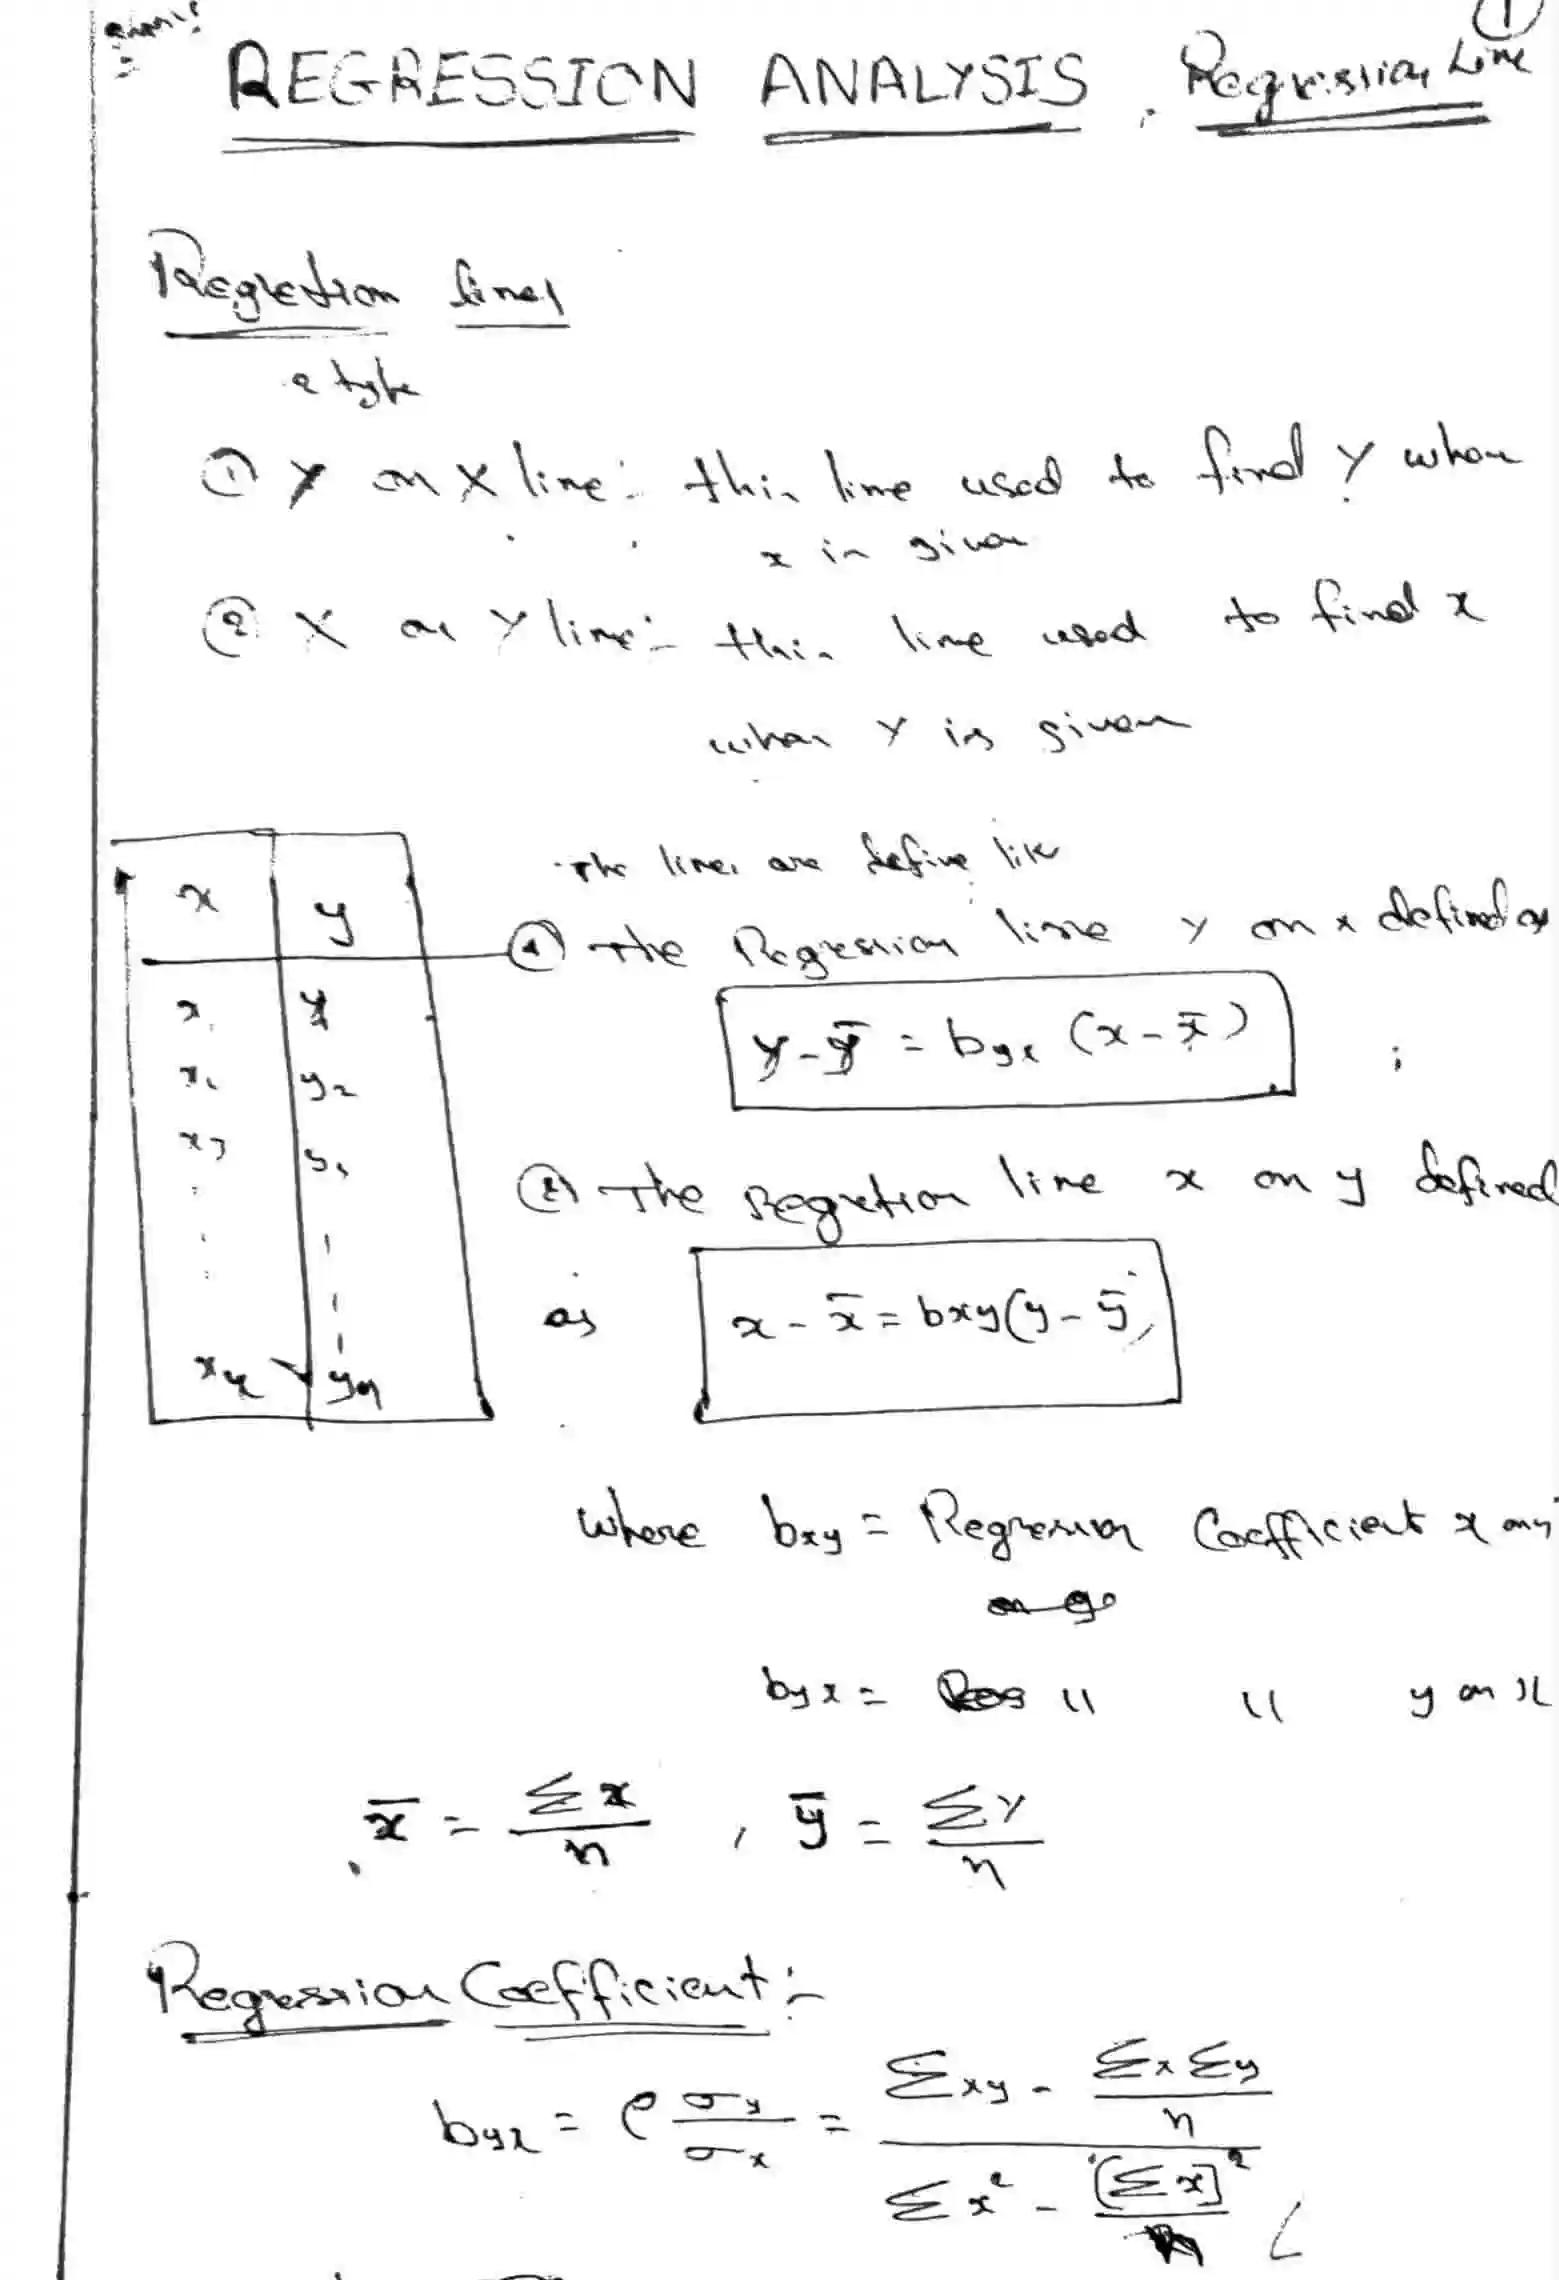 ①
REGRESSION ANALYSIS, Regression Line
Regretion lines
2 type
① Y on X line:- this line used to find Y when
x is given
② X on Y line:- this line used to find x
when Y is given
The lines are define like
x y
① The Regression line y on x defined as
x₁ y₁
y - ȳ = byx (x - x̄) ;
x₂ y₂
x₃ y₃
② The Regretion line x on y defined
as x - x̄ = bxy(y - ȳ)
xn yn
where bxy = Regression Coefficient x on y
byx = " " y on x
x̄ = Σx/n , ȳ = ΣY/n
Regression Coefficient:-
byx = ρ σy/σx = (Σxy - ΣxΣy/n) / (Σx² - [Σx]²/n)